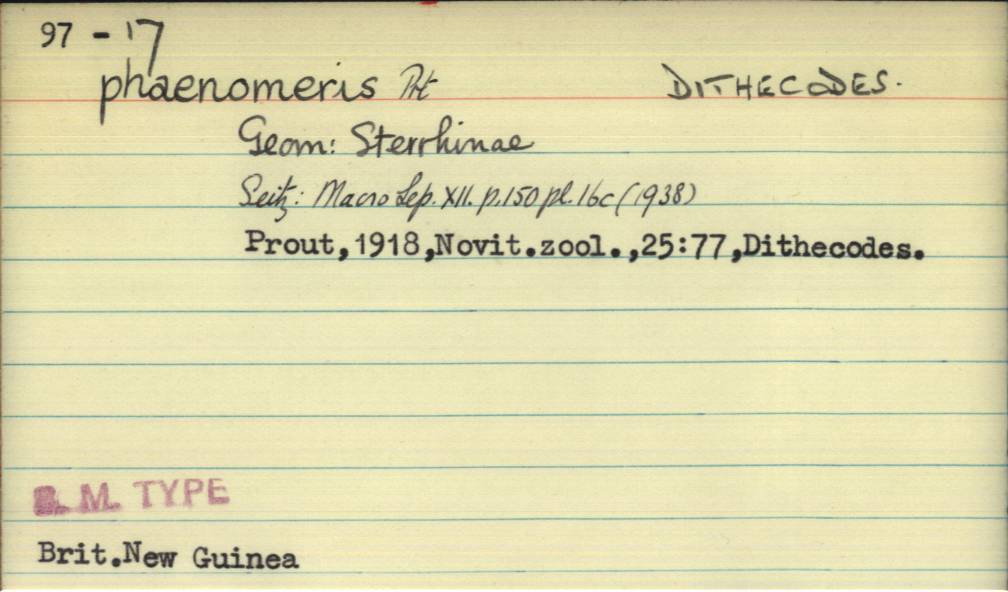 97 - 17
phaenomeris Prt DITHECODES.
Geom: Sterrhinae
Seitz: Macro Lep. XII. p.150 pl.16c (1938)
Prout,1918,Novit.zool.,25:77,Dithecodes.
B. M. TYPE
Brit.New Guinea